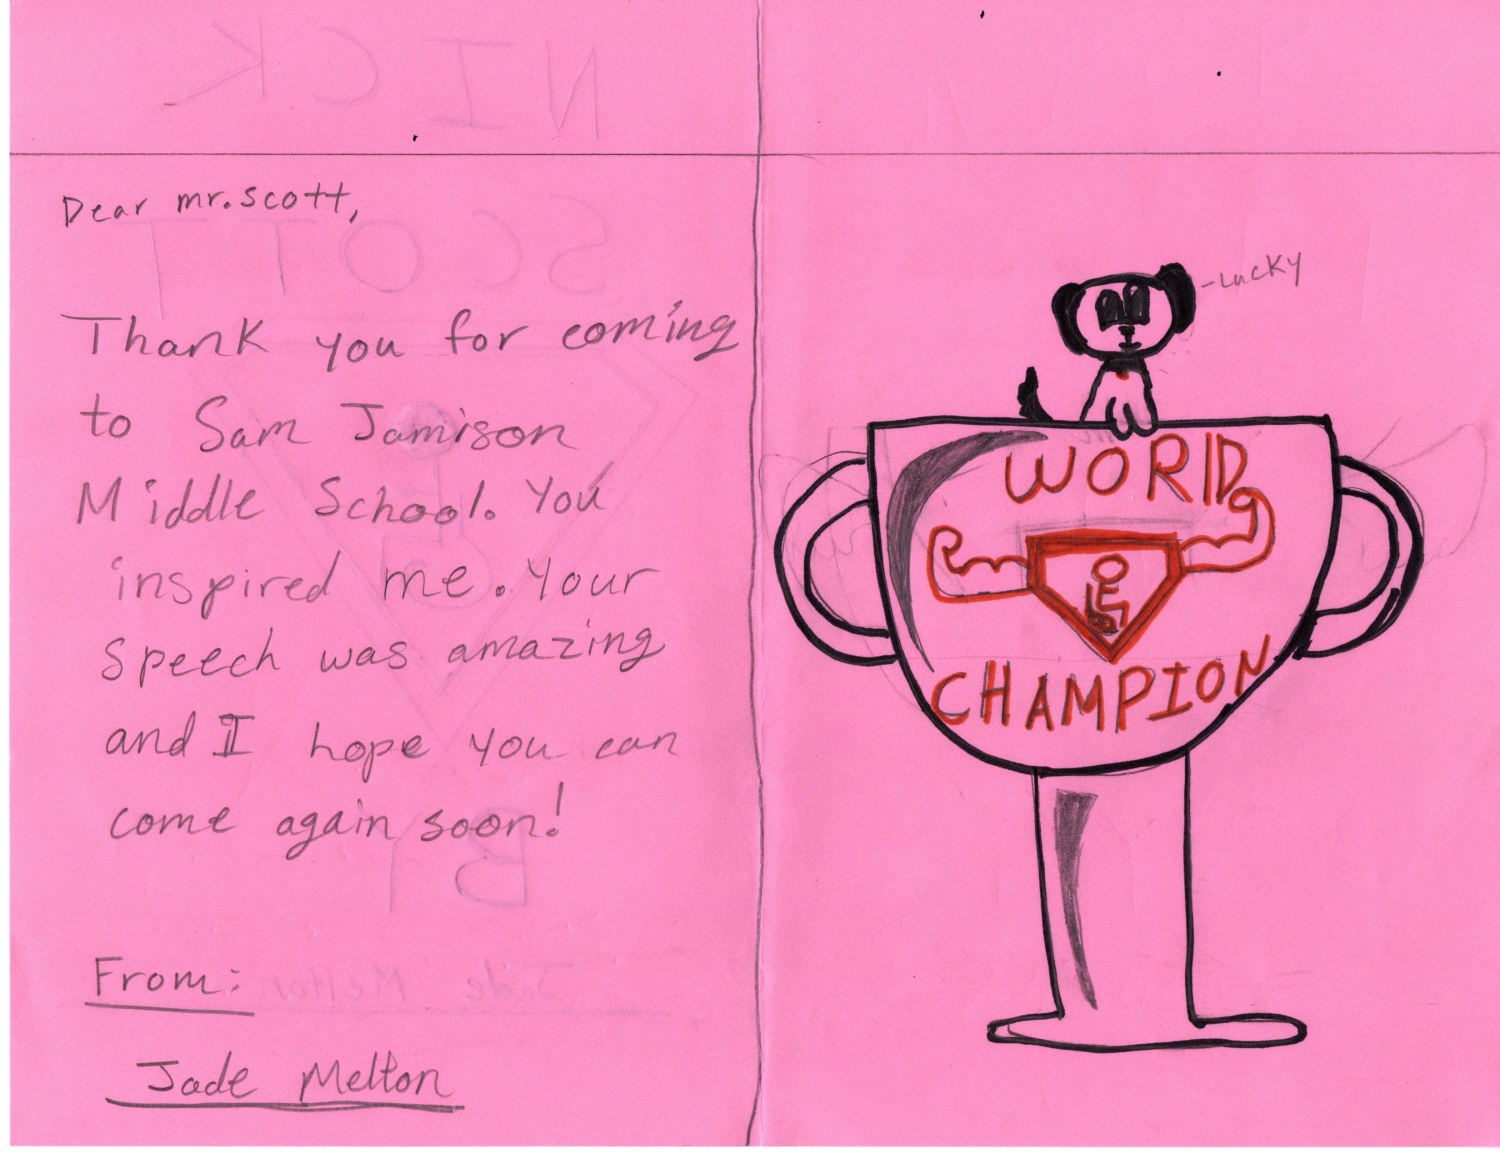 NICK
SCOTT
Dear mr. scott,
Thank you for coming
to Sam Jamison
Middle School. You
inspired me. Your
speech was amazing
and I hope you can
come again soon!
BY
Jade Melton
From:
Jade Melton
-Lucky
WORLD
CHAMPION